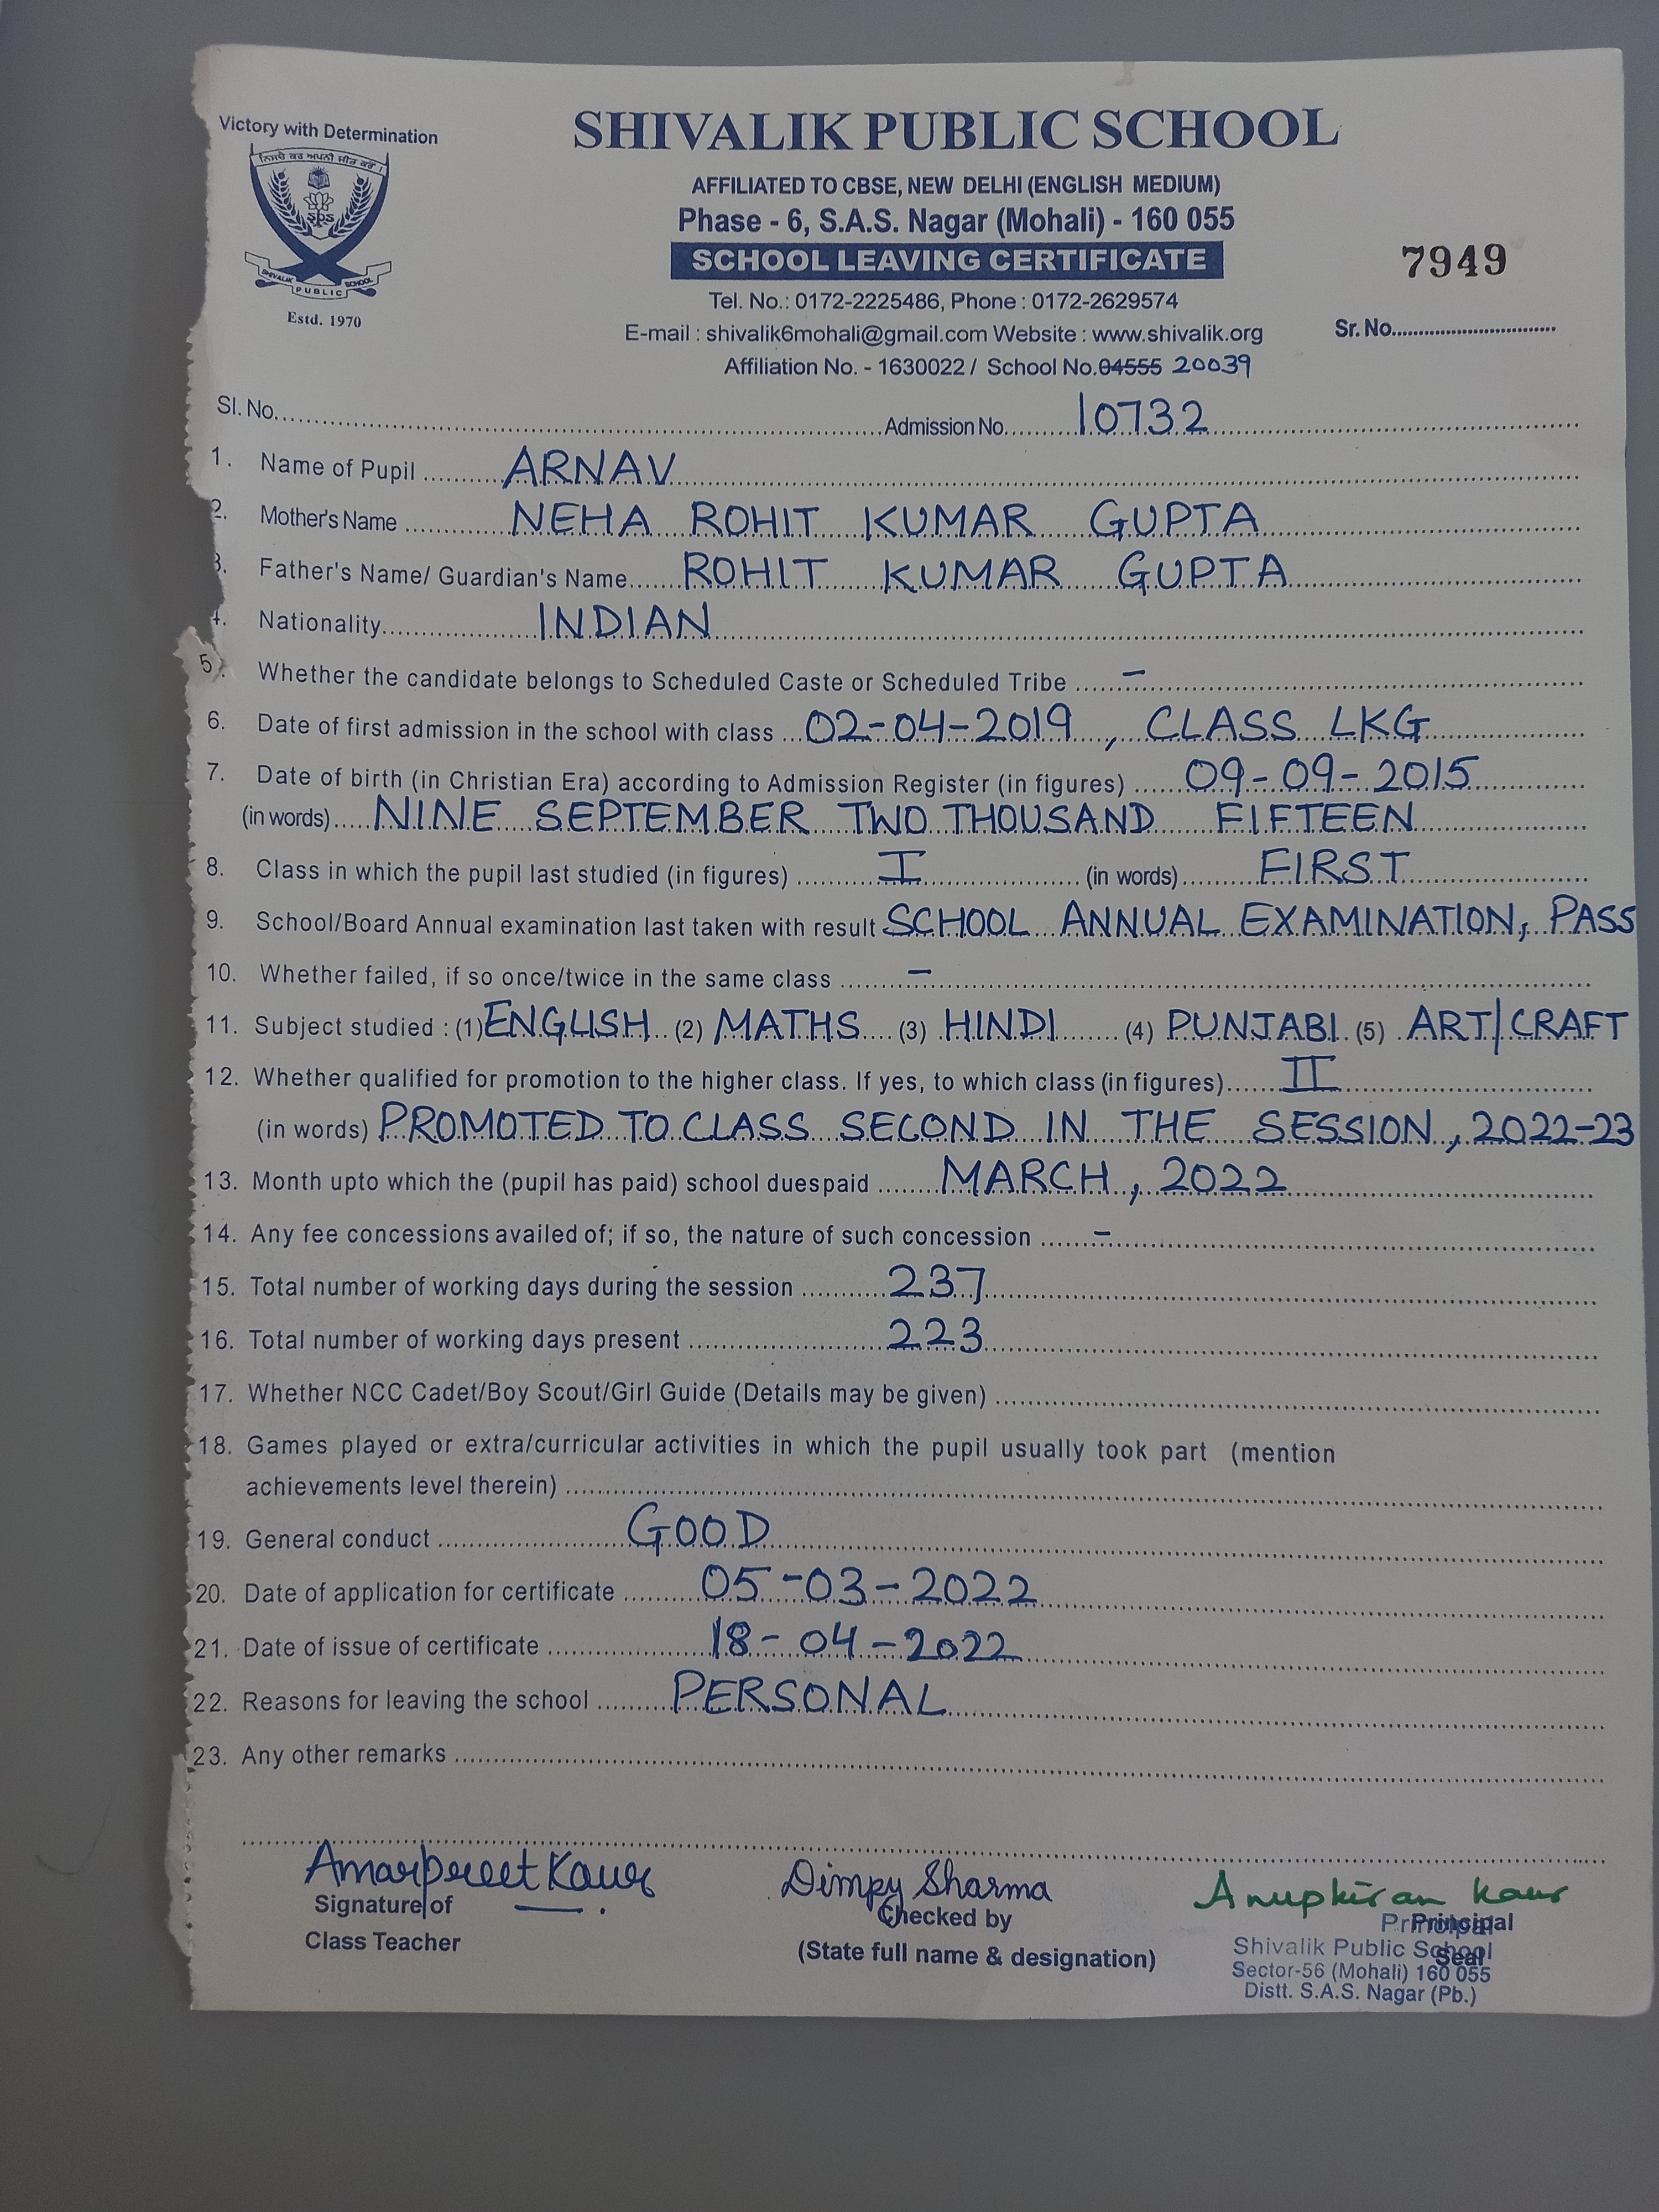 Victory with Determination
ਨਿਸਚੈ ਕਰ ਅਪਨੀ ਜੀਤ ਕਰੋਂ ।
SPS
SHIVALIK PUBLIC SCHOOL
Estd. 1970
SHIVALIK PUBLIC SCHOOL
AFFILIATED TO CBSE, NEW DELHI (ENGLISH MEDIUM)
Phase - 6, S.A.S. Nagar (Mohali) - 160 055
SCHOOL LEAVING CERTIFICATE
7949
Tel. No.: 0172-2225486, Phone : 0172-2629574
E-mail : shivalik6mohali@gmail.com Website : www.shivalik.org
Sr. No.
Affiliation No. - 1630022 / School No. 04555 20039
Sl. No. Admission No. 10732
1. Name of Pupil ARNAV
2. Mother's Name NEHA ROHIT KUMAR GUPTA
3. Father's Name/ Guardian's Name ROHIT KUMAR GUPTA
4. Nationality INDIAN
5. Whether the candidate belongs to Scheduled Caste or Scheduled Tribe –
6. Date of first admission in the school with class 02-04-2019, CLASS LKG
7. Date of birth (in Christian Era) according to Admission Register (in figures) 09-09-2015
(in words) NINE SEPTEMBER TWO THOUSAND FIFTEEN
8. Class in which the pupil last studied (in figures) I (in words) FIRST
9. School/Board Annual examination last taken with result SCHOOL ANNUAL EXAMINATION, PASS
10. Whether failed, if so once/twice in the same class –
11. Subject studied : (1) ENGLISH (2) MATHS (3) HINDI (4) PUNJABI (5) ART/CRAFT
12. Whether qualified for promotion to the higher class. If yes, to which class (in figures) II
(in words) PROMOTED TO CLASS SECOND IN THE SESSION, 2022-23
13. Month upto which the (pupil has paid) school duespaid MARCH, 2022
14. Any fee concessions availed of; if so, the nature of such concession –
15. Total number of working days during the session 237
16. Total number of working days present 223
17. Whether NCC Cadet/Boy Scout/Girl Guide (Details may be given)
18. Games played or extra/curricular activities in which the pupil usually took part (mention
achievements level therein)
19. General conduct GOOD
20. Date of application for certificate 05-03-2022
21. Date of issue of certificate 18-04-2022
22. Reasons for leaving the school PERSONAL
23. Any other remarks
Amarpreet Kaur
Signature of
Class Teacher
Dimpy Sharma
Checked by
(State full name & designation)
Anupkiran Kaur
Principal
Seal
Principal
Shivalik Public School
Sector-56 (Mohali) 160 055
Distt. S.A.S. Nagar (Pb.)